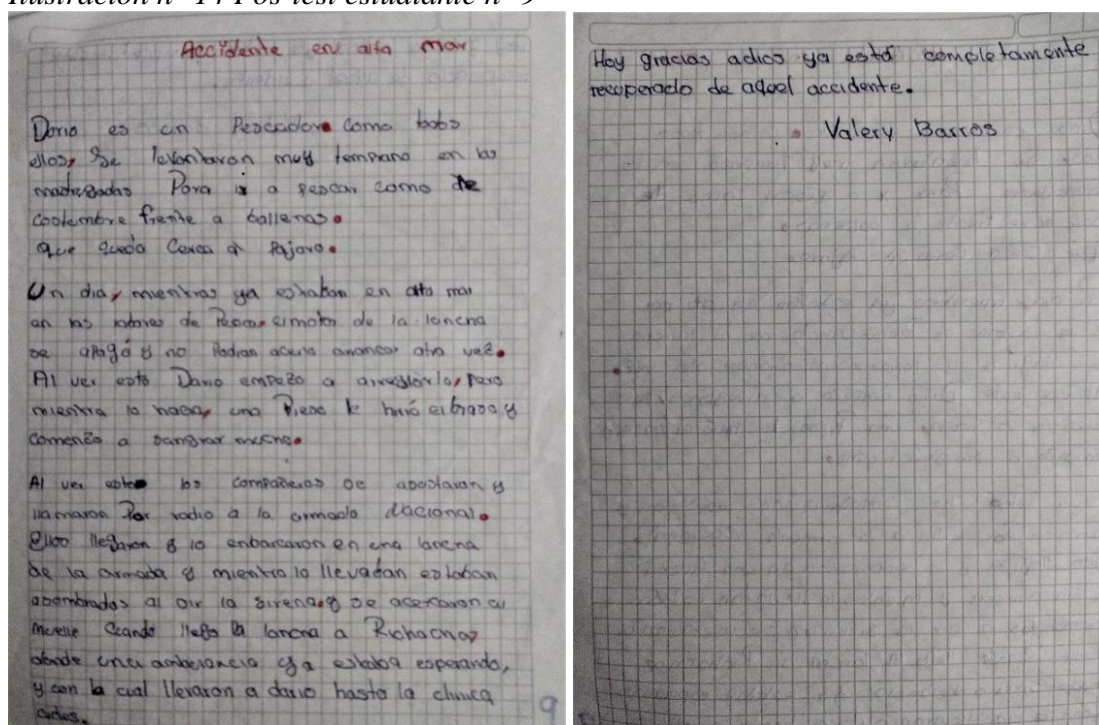 Ilustración n° 14 Pos-test estudiante n° 9
Accidente en alta mar
Dario es un Pescadore como todos
ellos, Se levantaron muy temprano en las
madrugadas Para ir a pescar como de
costumbre frente a ballenas.
que queda Cerca a Pajaro.
Un dia, mientras ya estaban en alta mar
en las labores de Pesca, el motor de la lancha
se apagó y no Podian acerlo arrancar otra vez.
Al ver esto Dario empezo a arreglarlo, Pero
mientra lo hacia, una Pieza le hirió el brazo y
comenzo a sangrar mucho.
Al ver esto los compañeros se asustaron y
llamaron Por radio a la armada Nacional.
Ellos llegaron y lo enbarcaron en una lancha
de la armada y mientra lo llevaban estaban
asombrados al oir la sirena, y se acercaron al
muelle Cuando llego la lancha a Riohacha,
donde una ambulancia ya estaba esperando,
y con la cual llevaron a dario hasta la clinica
9
Hoy gracias adios ya está completamente
recuperado de aquel accidente.
Valery Barros